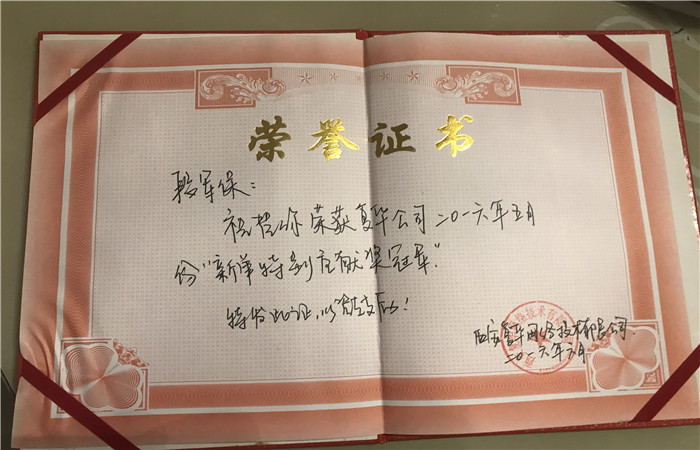 荣誉证书
段军保：
祝贺你荣获复华公司二〇一六年五月
份“新单特别贡献奖冠军”
特发此证，以资支励！
西安复华网络技术有限公司
二〇一六年六月